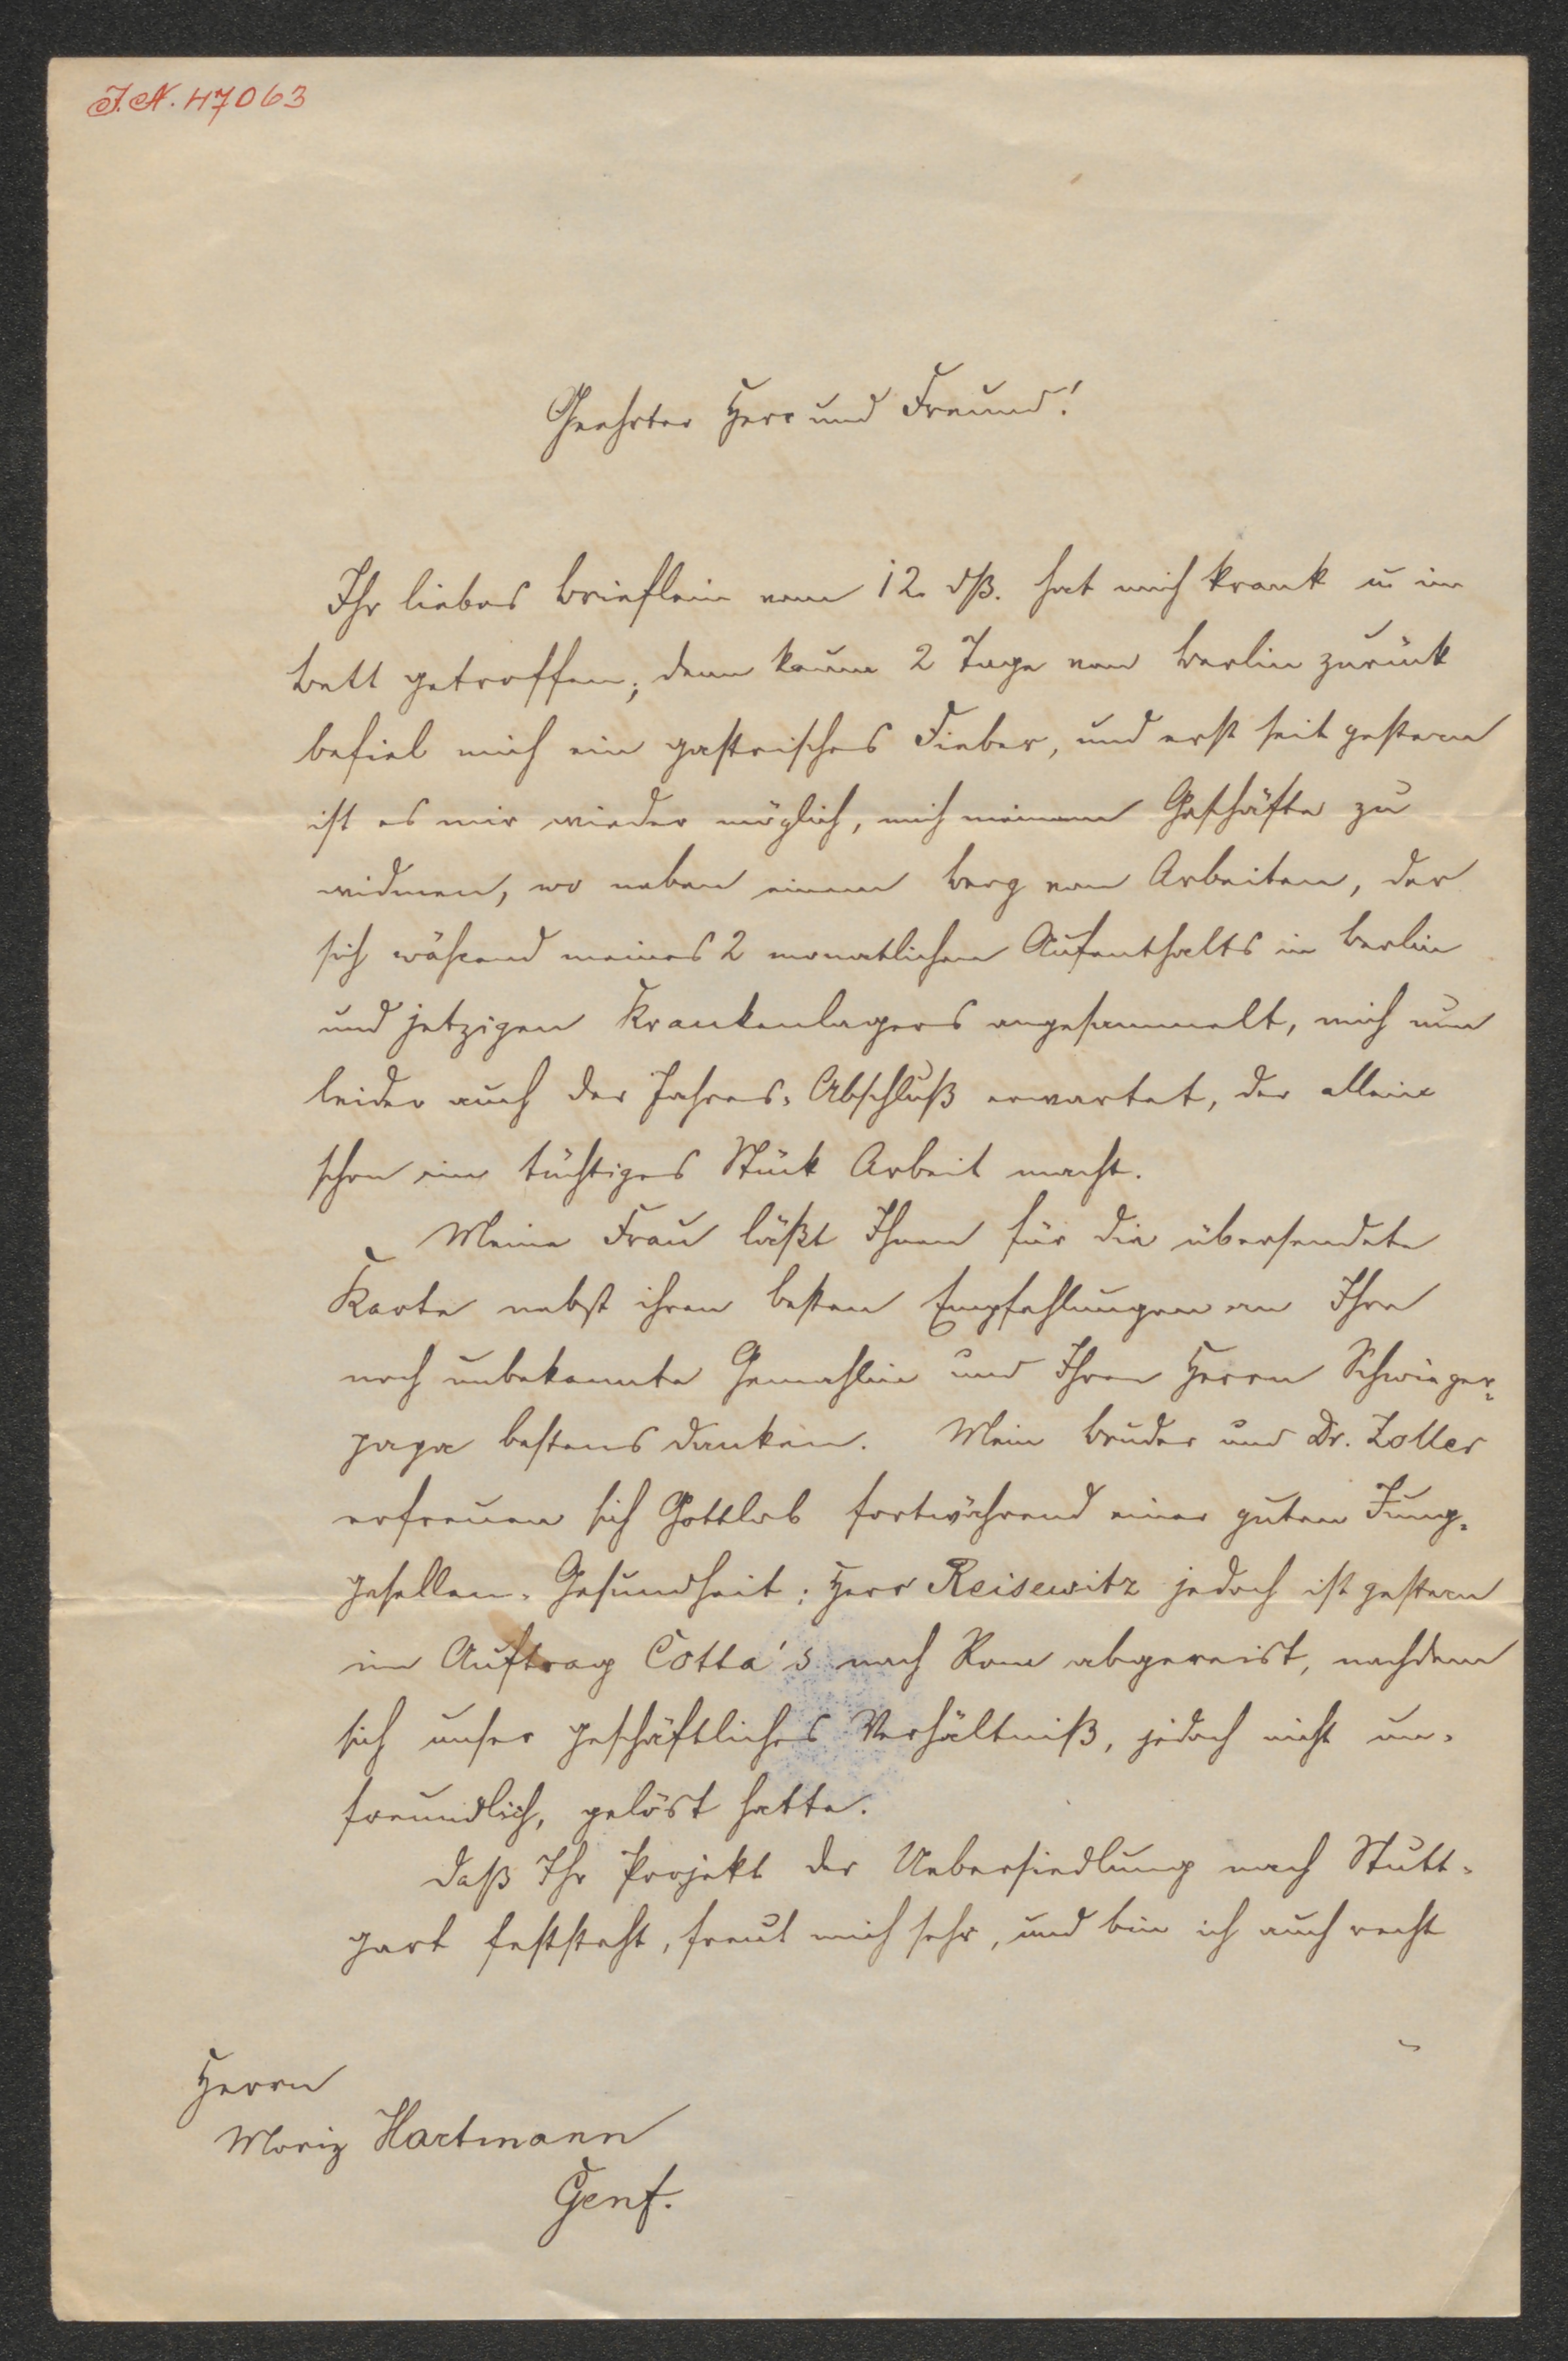 J.N. 47063
Geehrter Herr und Freund!
Ihr liebes Brieflein vom 12. dß. hat mich krank u im
Bett getroffen; denn kaum 2 Tage von Berlin zurück
befiel mich ein gastrisches Fieber, und erst seit gestern
ist es mir wieder möglich, mich meinem Geschäfte zu
widmen, wo neben einem Berg von Arbeiten, der
sich während meines 2 monatlichen Aufenthalts in Berlin
und jetzigen Krankenlagers angesammelt, mich nun
leider auch der Jahres-Abschluß erwartet, der allein
schon ein tüchtiges Stück Arbeit macht.
Meine Frau läßt Ihnen für die übersendete
Karte nebst ihren besten Empfehlungen an Ihre
noch unbekannte Gemahlin und Ihren Herrn Schwieger-
papa bestens danken. Mein Bruder und Dr. Zoller
erfreuen sich Gottlob fortwährend einer guten Jung-
gesellen-Gesundheit; Herr Reisewitz jedoch ist gestern
im Auftrag Cotta's nach Rom abgereist, nachdem
sich unser geschäftliches Verhältniß, jedoch nicht un-
freundlich, gelöst hatte.
Daß Ihr Projekt der Uebersiedlung nach Stutt-
gart feststeht, freut mich sehr, und bin ich auch recht
Herrn
Moriz Hartmann
Genf.